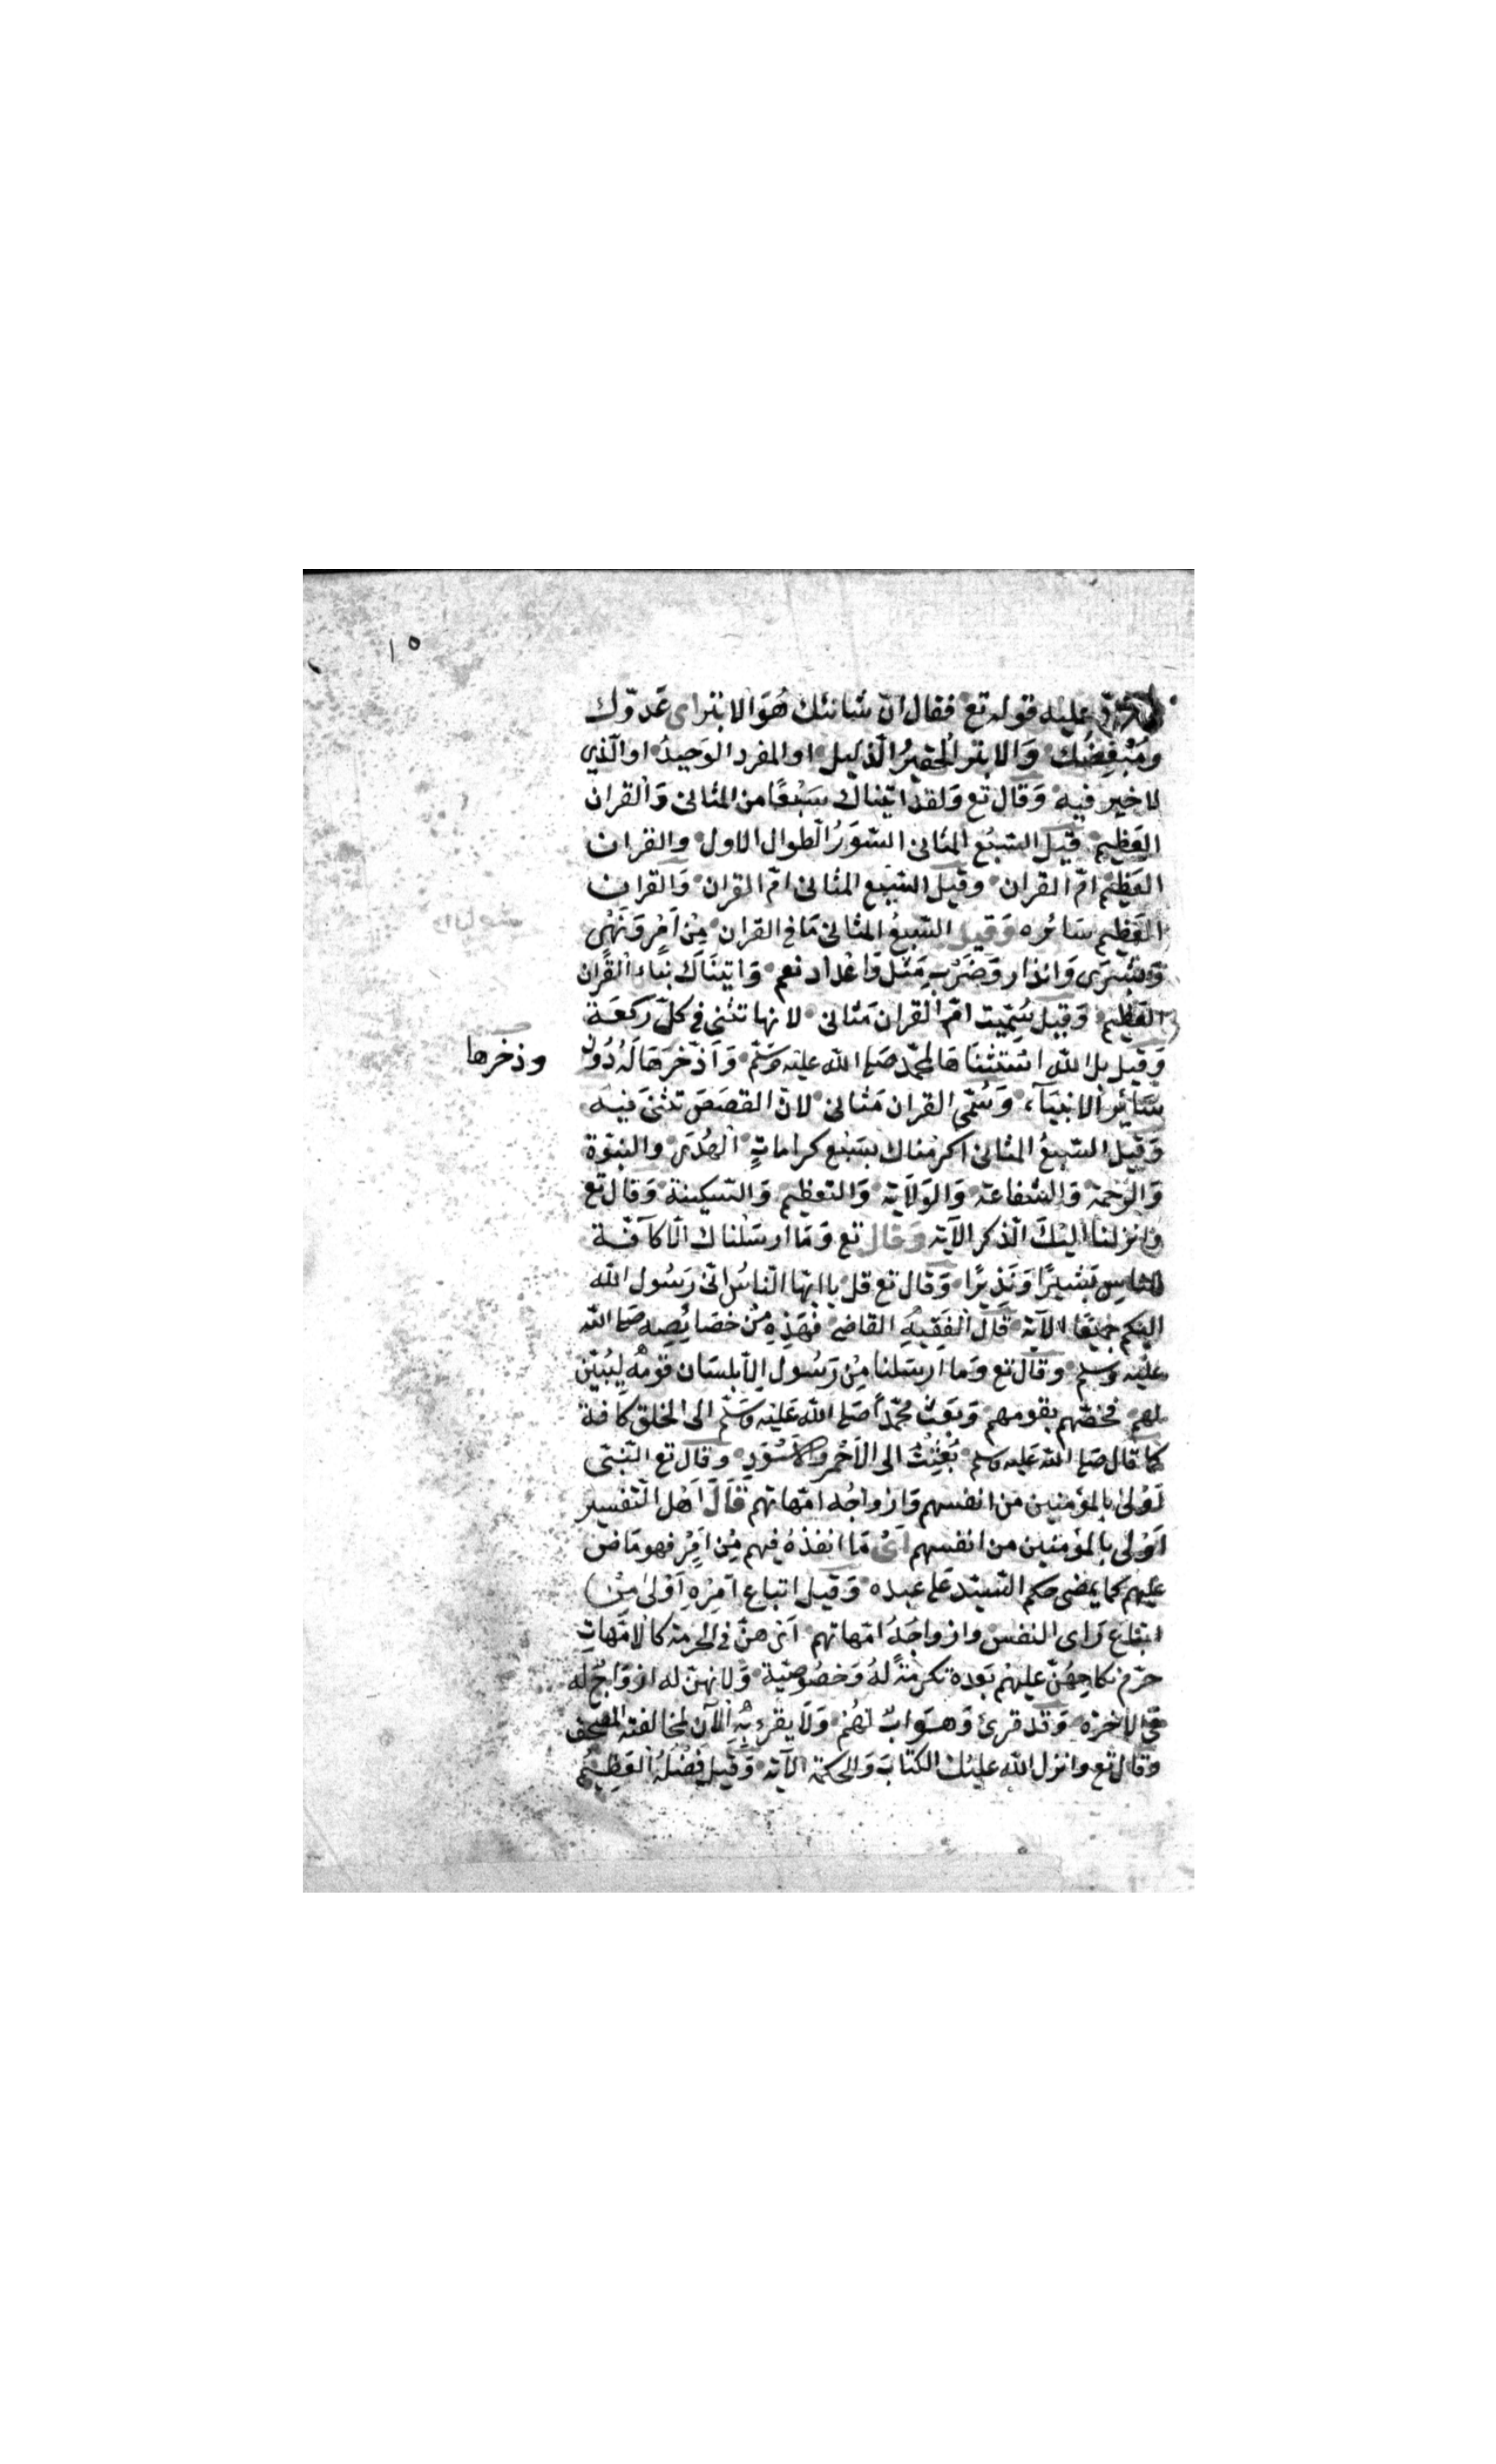 ١٥
ورد عليه قوله تع فقال انّ شانئك هُوَ الابتر اى عَدوّك
وَمُبْغِضُك وَالابتر الحقيرُ الذليل او المفرد الوَحيدُ او الّذي
لا خير فيه وَقال تع وَلقد اتيناك سَبْعًا من المثانى وَالقران
العَظيم قيل السّبْعُ المثانى السّوَرُ الطوال الاول والقران
العَظيم امّ القران وقيل السّبع المثانى امّ القران وَالقران
العَظيم سَائره وَقيل السّبعُ المثانى مَا فى القران مِنْ اَمْر وَنَهْى
وَبُشرَى وَانذار وَضَرْبِ مَثل وَاعْداد نعم وَاتينَاك نبَاء القران
العَظيم وَقيل سُمّيت امّ القران مَثانى لانها تثنى فى كلّ ركعَة
وَقيل بل الله استثنَاهَا لمحمّد صَلى الله عليه وسَلّم وَاذّخَرَهَا لَهُ دُون
وذخرها
سَائر الانبيَآء وَسُمّى القران مَثانى لانّ القصَصَ تثنى فيه
وَقيل السّبعُ المثانى اكرمناك بسَبْع كراماتٍ الهُدَى والنبوّة
وَالرّحمة وَالشفاعَة وَالوَلَاية وَالتعظيم وَالسّكينة وَقال تع
وَانزلنا اليْكَ الذكر الآية وَقال تع وَمَا ارسَلناك الّا كآفّة
للناسِ بَشيرًا وَنَذِيرًا وَقال تع قل ياايّها الناسُ انّى رَسُول الله
اليكم جميعًا الآية قال الفَقيهُ القاضى فهَذِهِ مِنْ خصَائصِه صَلى الله
عليْه وسلم وقال تع وَما ارسَلنا مِنْ رَسُول الّا بلسَان قومه ليُبَيّن
لهم فخصّهم بقومهم وَبَعَثَ محمّداً صَلى الله عَليْه وسَلّم الى الخلق كآفة
كما قال صَلى الله عَليه وسلم بُعِثْتُ الى الاَحْمر وَالاَسْوَدِ وقال تع النّبىّ
اَوْلى بالمؤمنين من انفسهم وَازواجُه امّهاتهم قَالَ اَهْل التّفسير
اوْلى بالمؤمنين من انفسهم اَىْ مَا انفذهُ فيهم مِن اَمْر فهو مَاض
عليهم كما يمضى حكم السّيّد عَلى عبده وَقيل اتباع اَمْرِهِ اَوْلى مِنْ
اتباع رَاى النفس وازواجُهُ امّهاتهم اَىْ هنّ فى الحرمة كالامّهاتِ
حرّم نكاحِهُنّ عليهم بَعْده تكرِمةً لهُ وَخصُوصيّة وَلانهنّ له ازوَاجٌ له
فى الاخرة وَقد قرئ وَهوَ اَبٌ لهُم وَلَا يقرءُ بِهِ الآن لمخالفته المصْحَف
وَقال تع وانزل الله عليْك الكتابَ وَالحكمة الآية وَقيل فَضْلهُ العَظيْمُ